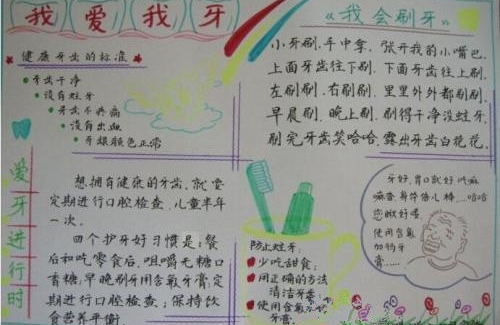 我爱我牙
健康牙齿的标准
牙齿干净
没有蛀牙
牙齿不疼痛
没有出血
牙龈颜色正常
《我会刷牙》
小牙刷,手中拿,张开我的小嘴巴,
上面牙齿往下刷,下面牙齿往上刷,
左刷刷,右刷刷,里里外外都刷刷,
早晨刷,晚上刷,刷得干净没蛀牙,
刷完牙齿笑哈哈,露出牙齿白花花。
爱牙进行时
想拥有健康的牙齿,就要
定期进行口腔检查,儿童半年
一次。
四个护牙好习惯是:餐
后和吃零食后,咀嚼无糖口
香糖;早晚刷牙用含氟牙膏;定
期进行口腔检查;保持饮
食营养平衡
防止蛀牙:
少吃甜食;
用正确的方法
清洁牙齿
使用含氟
牙膏
牙好,胃口就好
身体倍儿棒
哈哈
使用含氟
牙膏……